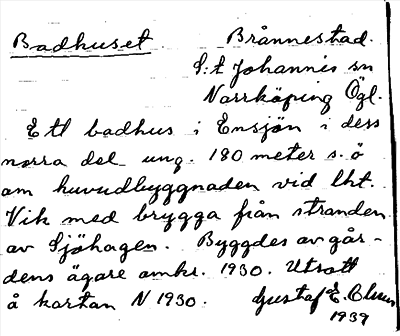 Badhuset Brånnestad.
S:t Johannis sn
Norrköping Ögl.
Ett badhus i Ensjön i dess
norra del ung. 180 meter s.ö
om huvudbyggnaden vid lht.
Vik med brygga från stranden
av Sjöhagen. Byggdes av går-
dens ägare omkr. 1930. Utsatt
å kartan N 1930. Gustaf E. Olsson
1939